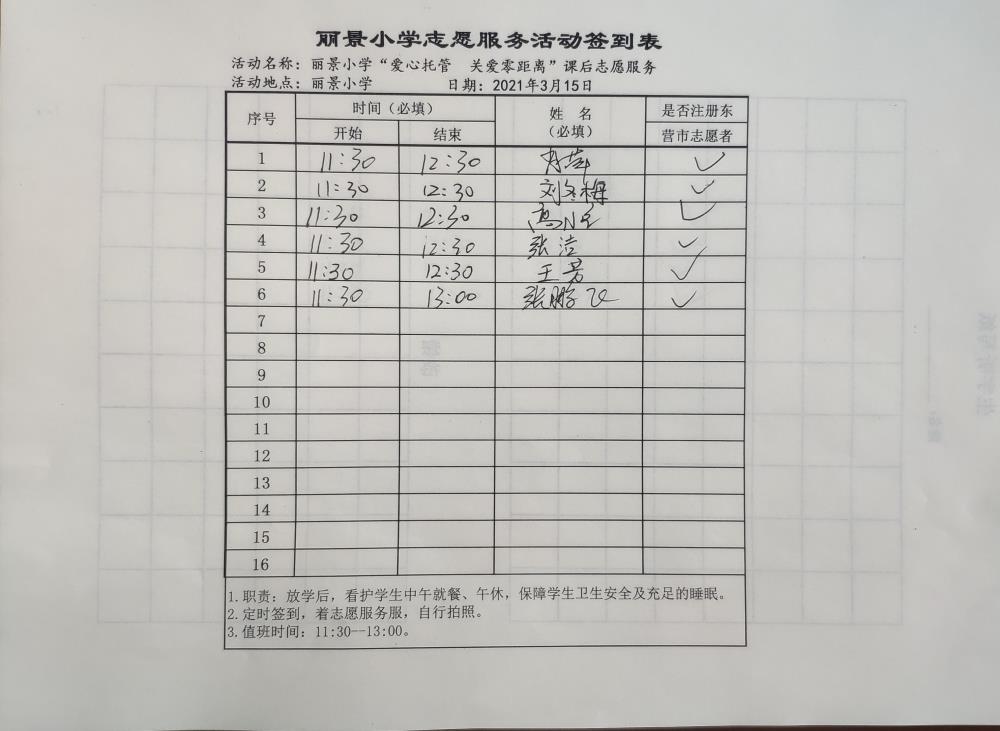 丽景小学志愿服务活动签到表
活动名称：丽景小学“爱心托管 关爱零距离”课后志愿服务
活动地点：丽景小学 日期：2021年3月15日
序号 时间（必填） 姓名（必填） 是否注册东营市志愿者
开始 结束
1 11:30 12:30 ✓
2 11:30 12:30 刘冬梅 ✓
3 11:30 12:30 ✓
4 11:30 12:30 张洁 ✓
5 11:30 12:30 王芳 ✓
6 11:30 13:00 张鹏飞 ✓
7
8
9
10
11
12
13
14
15
16
1.职责：放学后，看护学生中午就餐、午休，保障学生卫生安全及充足的睡眠。
2.定时签到，着志愿服务服，自行拍照。
3.值班时间：11:30--13:00。